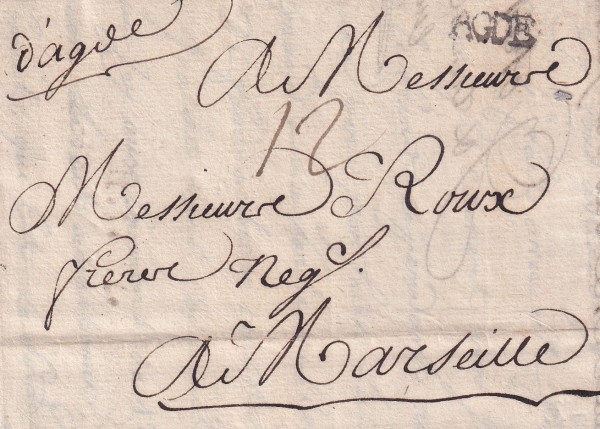 d'agde
AGDE
A Messieurs
12
Messieurs Roux
freres Negts.
A Marseille